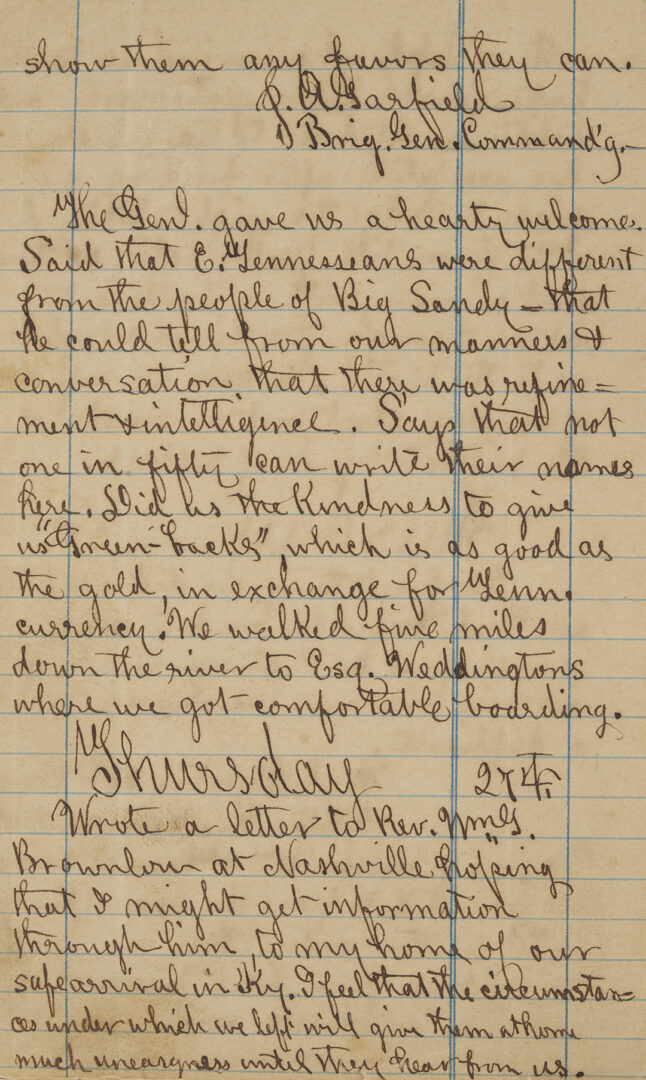 show them any favors they can.
J. A. Garfield
Brig. Gen. Command'g.-
The Genl. gave us a hearty welcome.
Said that E. Tennesseans were different
from the people of Big Sandy - that
he could tell from our manners &
conversation that there was refine=
ment & intelligence. Says that not
one in fifty can write their names
here. Did us the kindness to give
us "Green-backs", which is as good as
the gold, in exchange for Tenn.
currency. We walked five miles
down the river to Esq. Weddingtons
where we got comfortable boarding.
Thursday 27th.
Wrote a letter to Rev. Wm G.
Brownlow at Nashville hoping
that I might get information
through him, to my home of our
safe arrival in Ky. I feel that the circumstan=
ces under which we left will give them at home
much uneasyness until they hear from us.